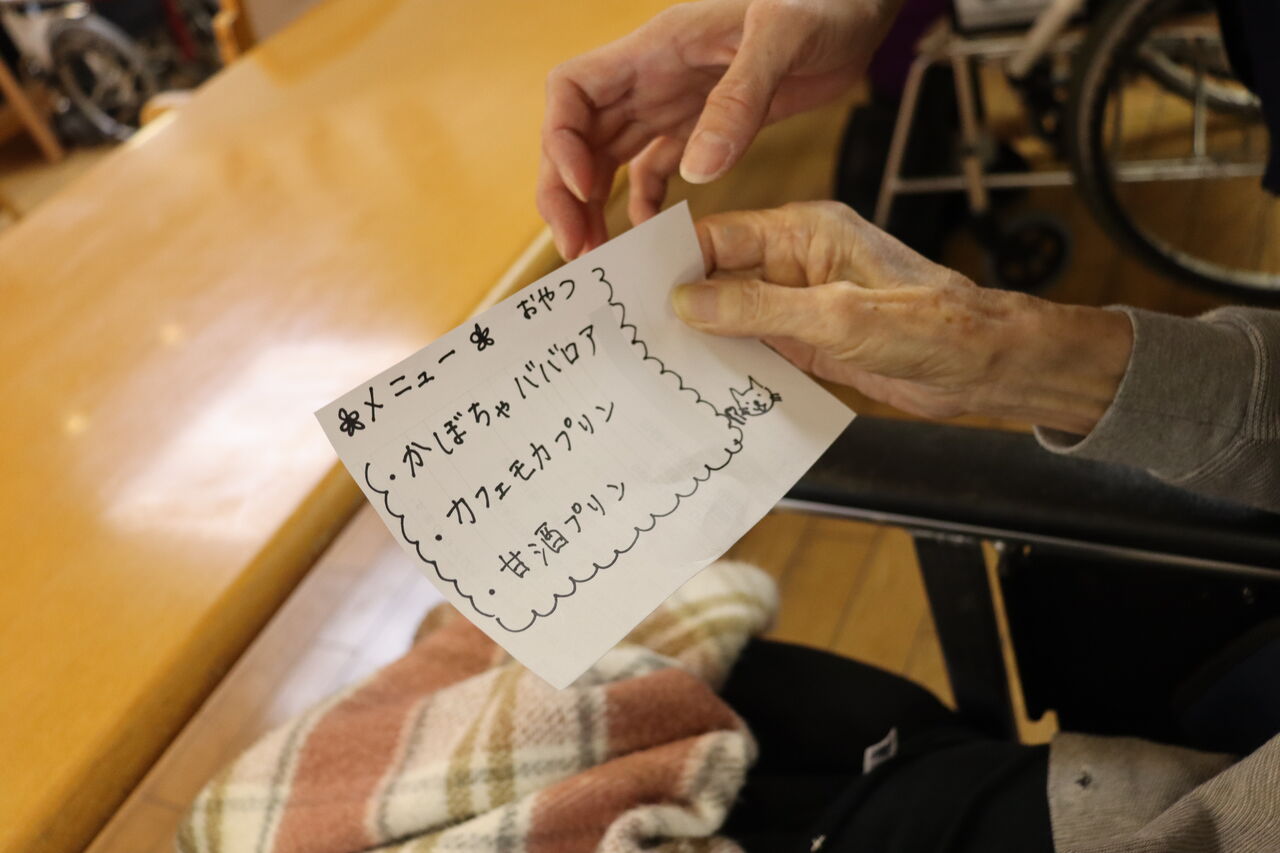 メニュー おやつ
・かぼちゃババロア
・カフェモカプリン
・甘酒プリン